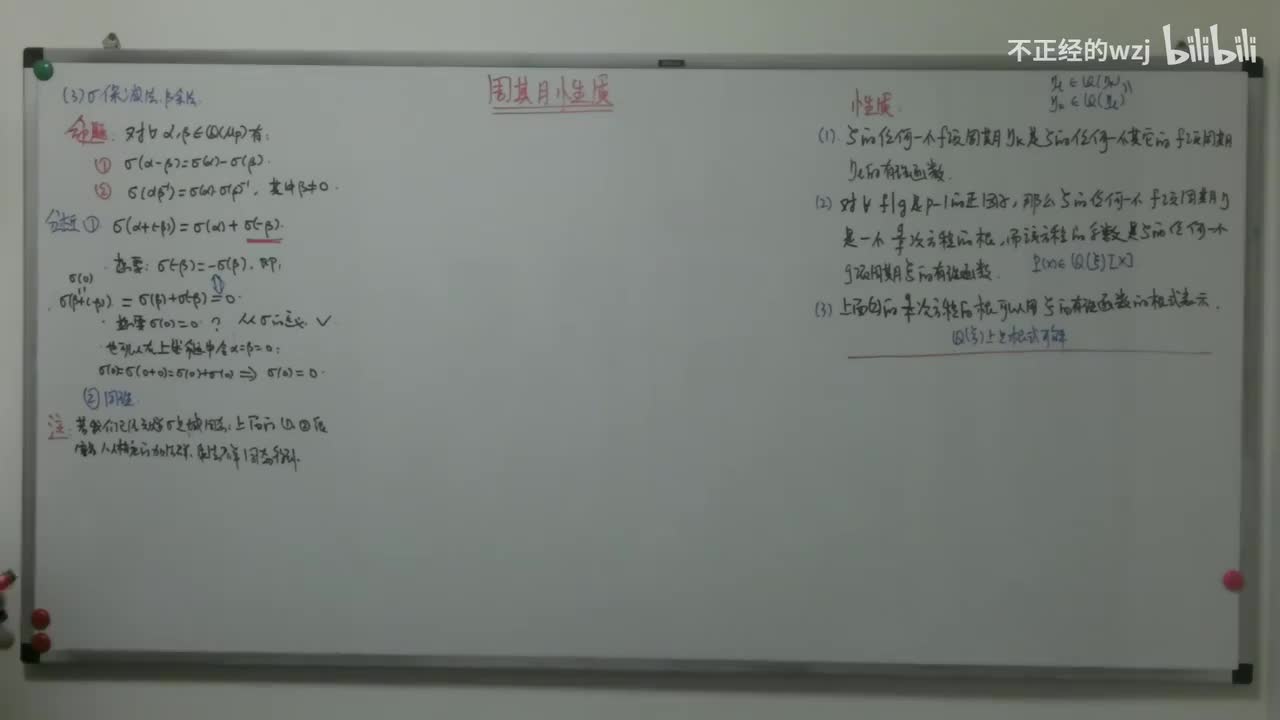 不正经的wzj bilibili
周期月性质
(3) σ保减法、除法.
命题: 对∀ α,β∈Q(μp)有:
① σ(α-β)=σ(α)-σ(β).
② σ(αβ⁻¹)=σ(α)·σ(β)⁻¹, 其中β≠0.
分析 ① σ(α+(-β))=σ(α)+σ(-β).
· 想要: σ(-β)=-σ(β), 即:
σ(0)
σ(β+(-β)) = σ(β)+σ(-β) = 0.
· 想要σ(0)=0 ? 从σ的定义 ✓
· 也可以在上述命题中令α=β=0:
σ(0)=σ(0+0)=σ(0)+σ(0) ⟹ σ(0)=0.
② 同理.
注: 若我们已经知道σ是域同态, 上面的①,②
性质.
(1) ζ的任何一个f项周期ηk是ζ的任何一个其它的f项周期
ηl的有理函数.
(2) 对∀ f|g是p-1的正因子, 那么ζ的任何一个f项周期η
是一个g/f次方程的根, 而该方程的系数是ζ的任何一个
g项周期ξ的有理函数. P(x)∈Q(ξ)[X]
(3) 上面的g/f次方程的根可以用ξ的有理函数的根式表示.
Q(ξ)上是根式可解